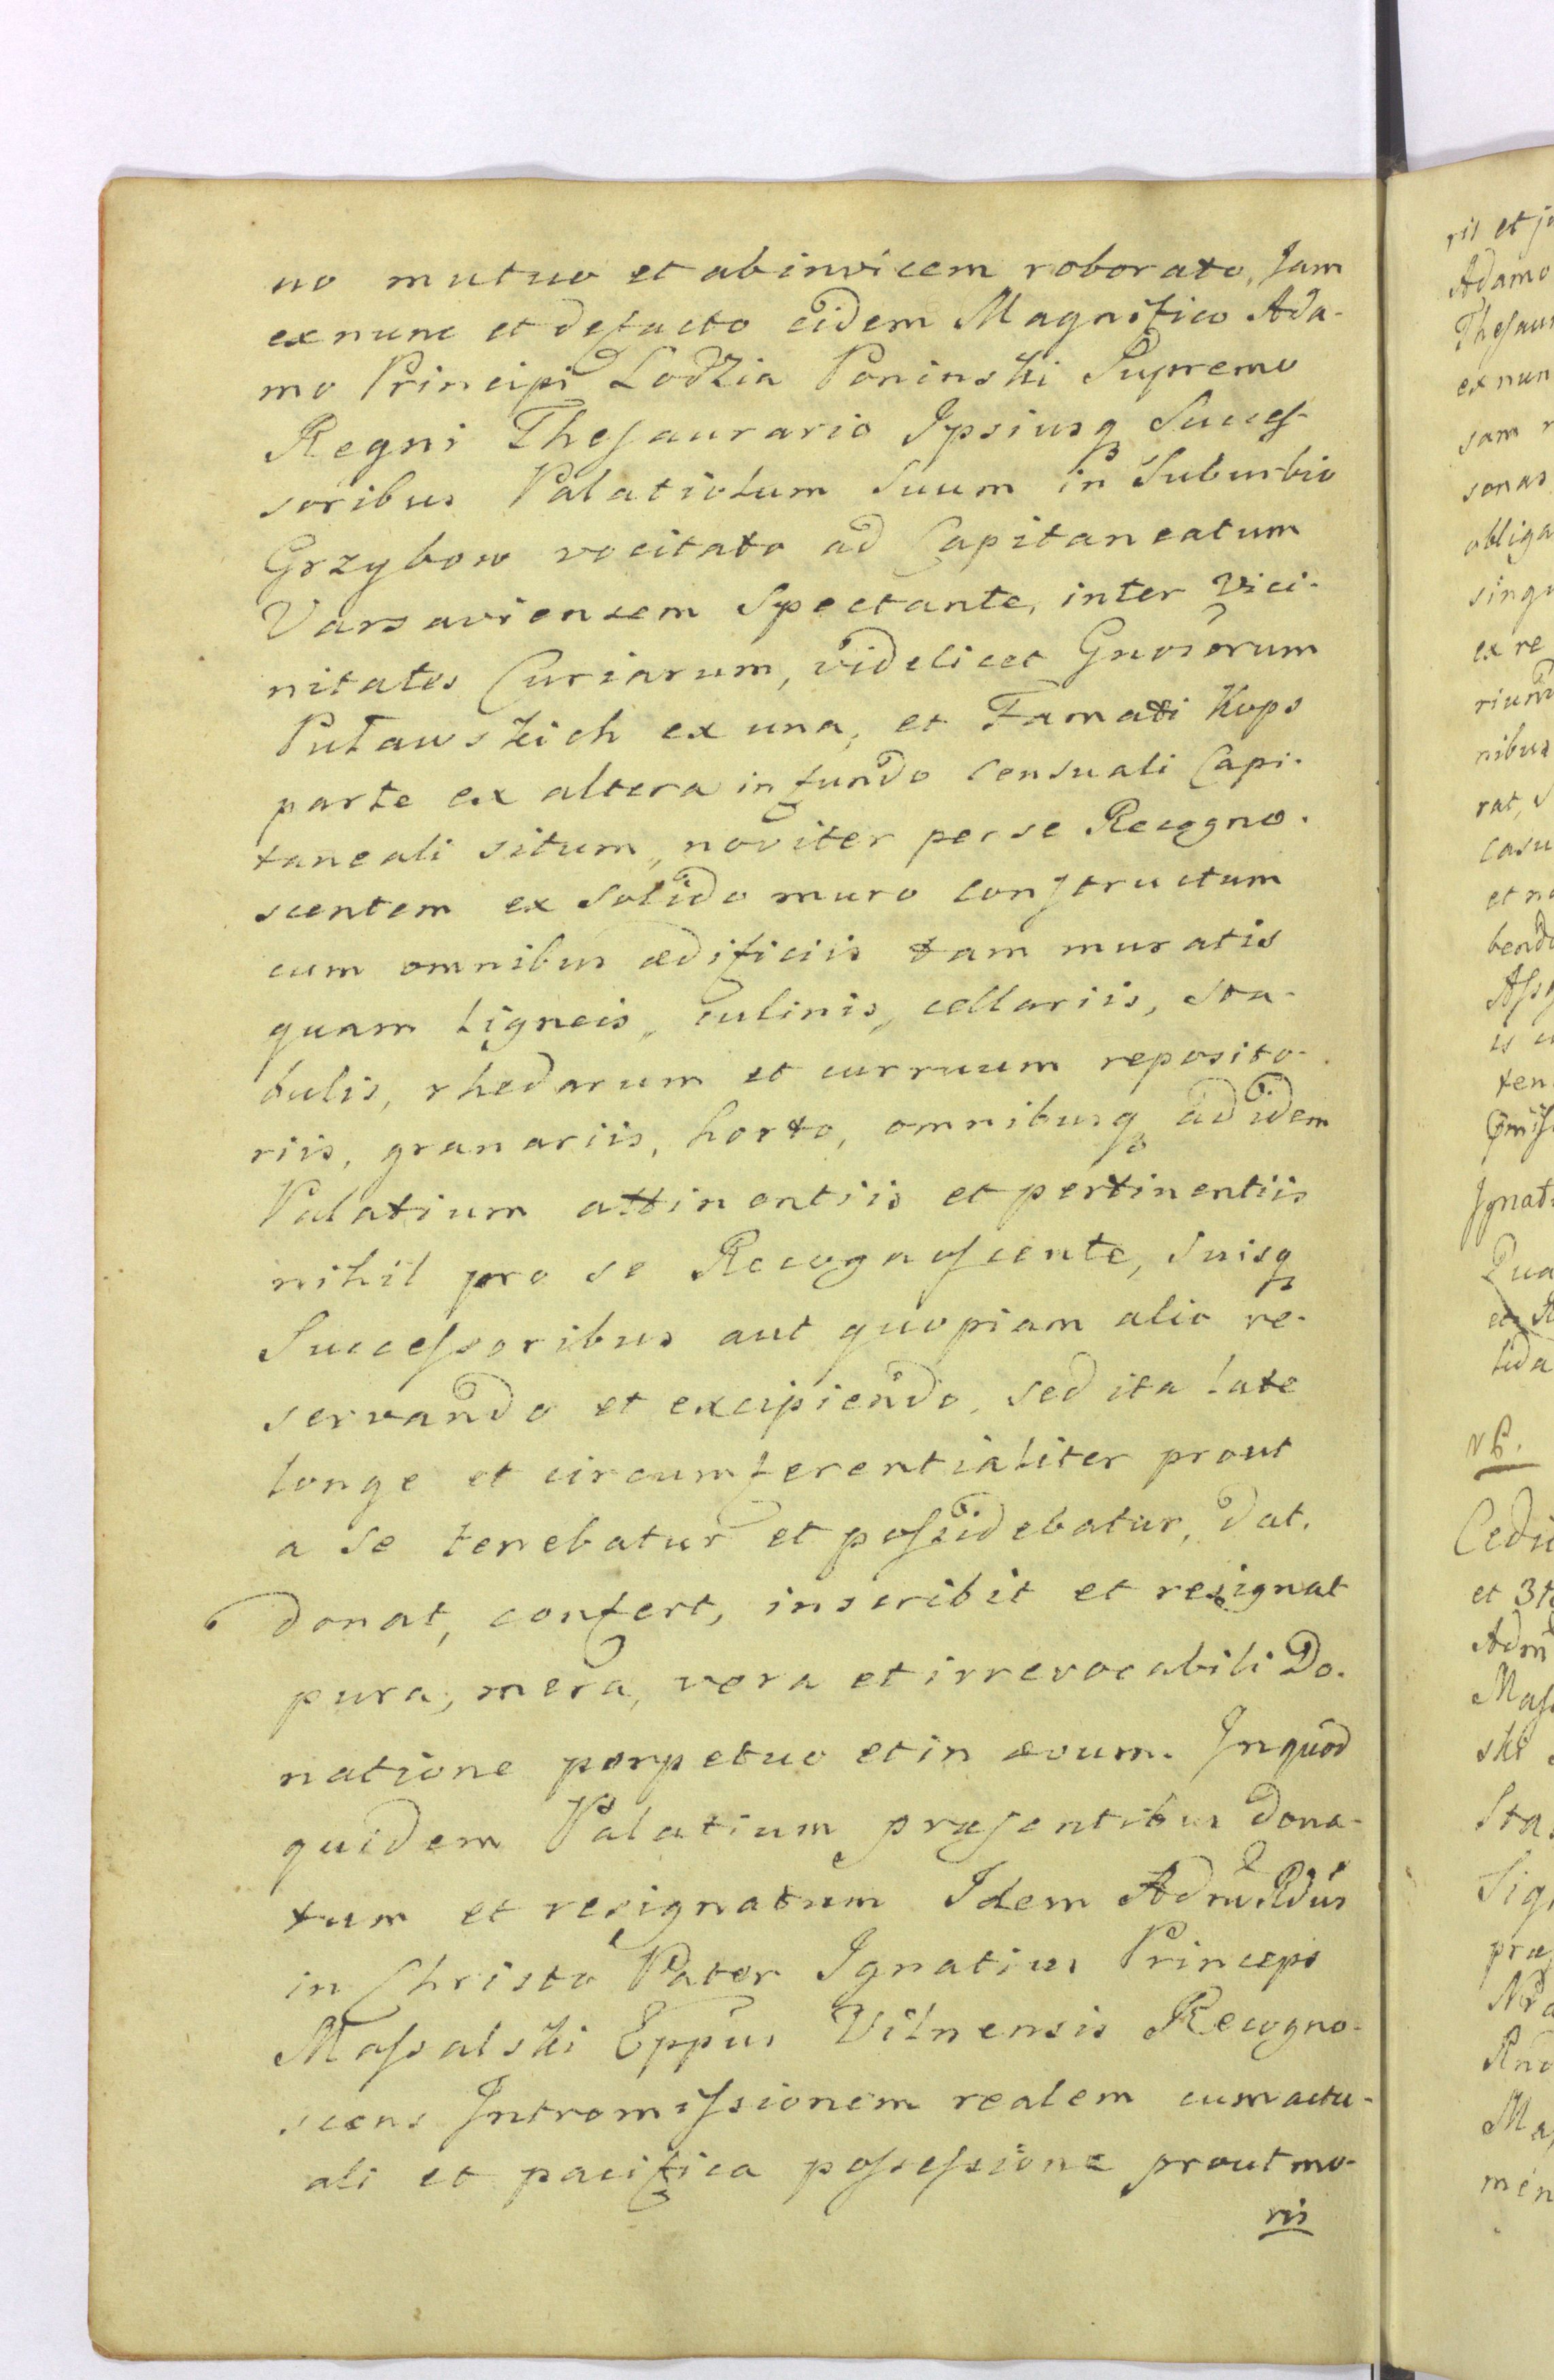 no mutuo et abinvicem roborato, Jam
ex nunc et defacto eidem Magnifico Ada-
mo Principi Lodzia Poninski Supremo
Regni Thesaurario Ipsiusq Succes-
soribus Palatiolum Suum in Suburbio
Grzybow vocitato ad Capitaneatum
Varsaviensem Spectante, inter Vici-
nitates Curiarum, videlicet Gnosorum
Puławskich ex una, et Famati Kops
parte ex altera in fundo Censuali Capi-
taneali situm, noviter per se Recogno-
scentem ex Solido muro constructum
cum omnibus ædificiis tam muratis
quam ligneis, culinis, cellariis, sta-
bulis, rhedarum et curruum reposito-
riis, granariis, horto, omnibusq ad idem
Palatium attinentiis et pertinentiis
nihil pro se Recognoscente, Suisq
Successoribus aut quopiam alio re-
servando et excipiendo, sed ita late
longe et circumferentialiter prout
a Se tenebatur et possidebatur, dat,
donat, confert, inscribit et resignat
pura, mera, vera et irrevocabili Do-
natione perpetuo et in ævum. In quod
quidem Palatium præsentibus dona-
tum et resignatum Idem Adm Rdus
in Christo Pater Ignatius Princeps
Massalski Eppus Vilnensis Recogno-
scens Intromissionem realem cum actu-
ali et pacifica possessione prout mo-
ris
ris et
Adamo
Thesau
ex nun
sam
sonas
obliga
singu
ex re
nibus
rat,
casu
et no
bend
ten
Ignat
Qua
et
lida
NB.
Cedi
et 3t
Adm
Mas
ski
Sta
Sig
præ
Ma
men